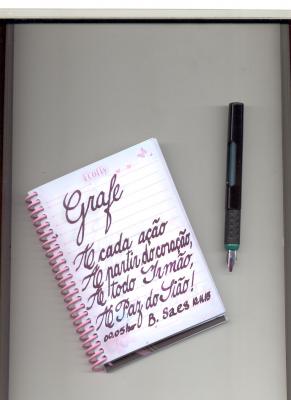 Grafe
A cada ação
A partir do coração,
A todo Irmão,
A Paz do Sião!
00.05hr B. Saes 12.11.15